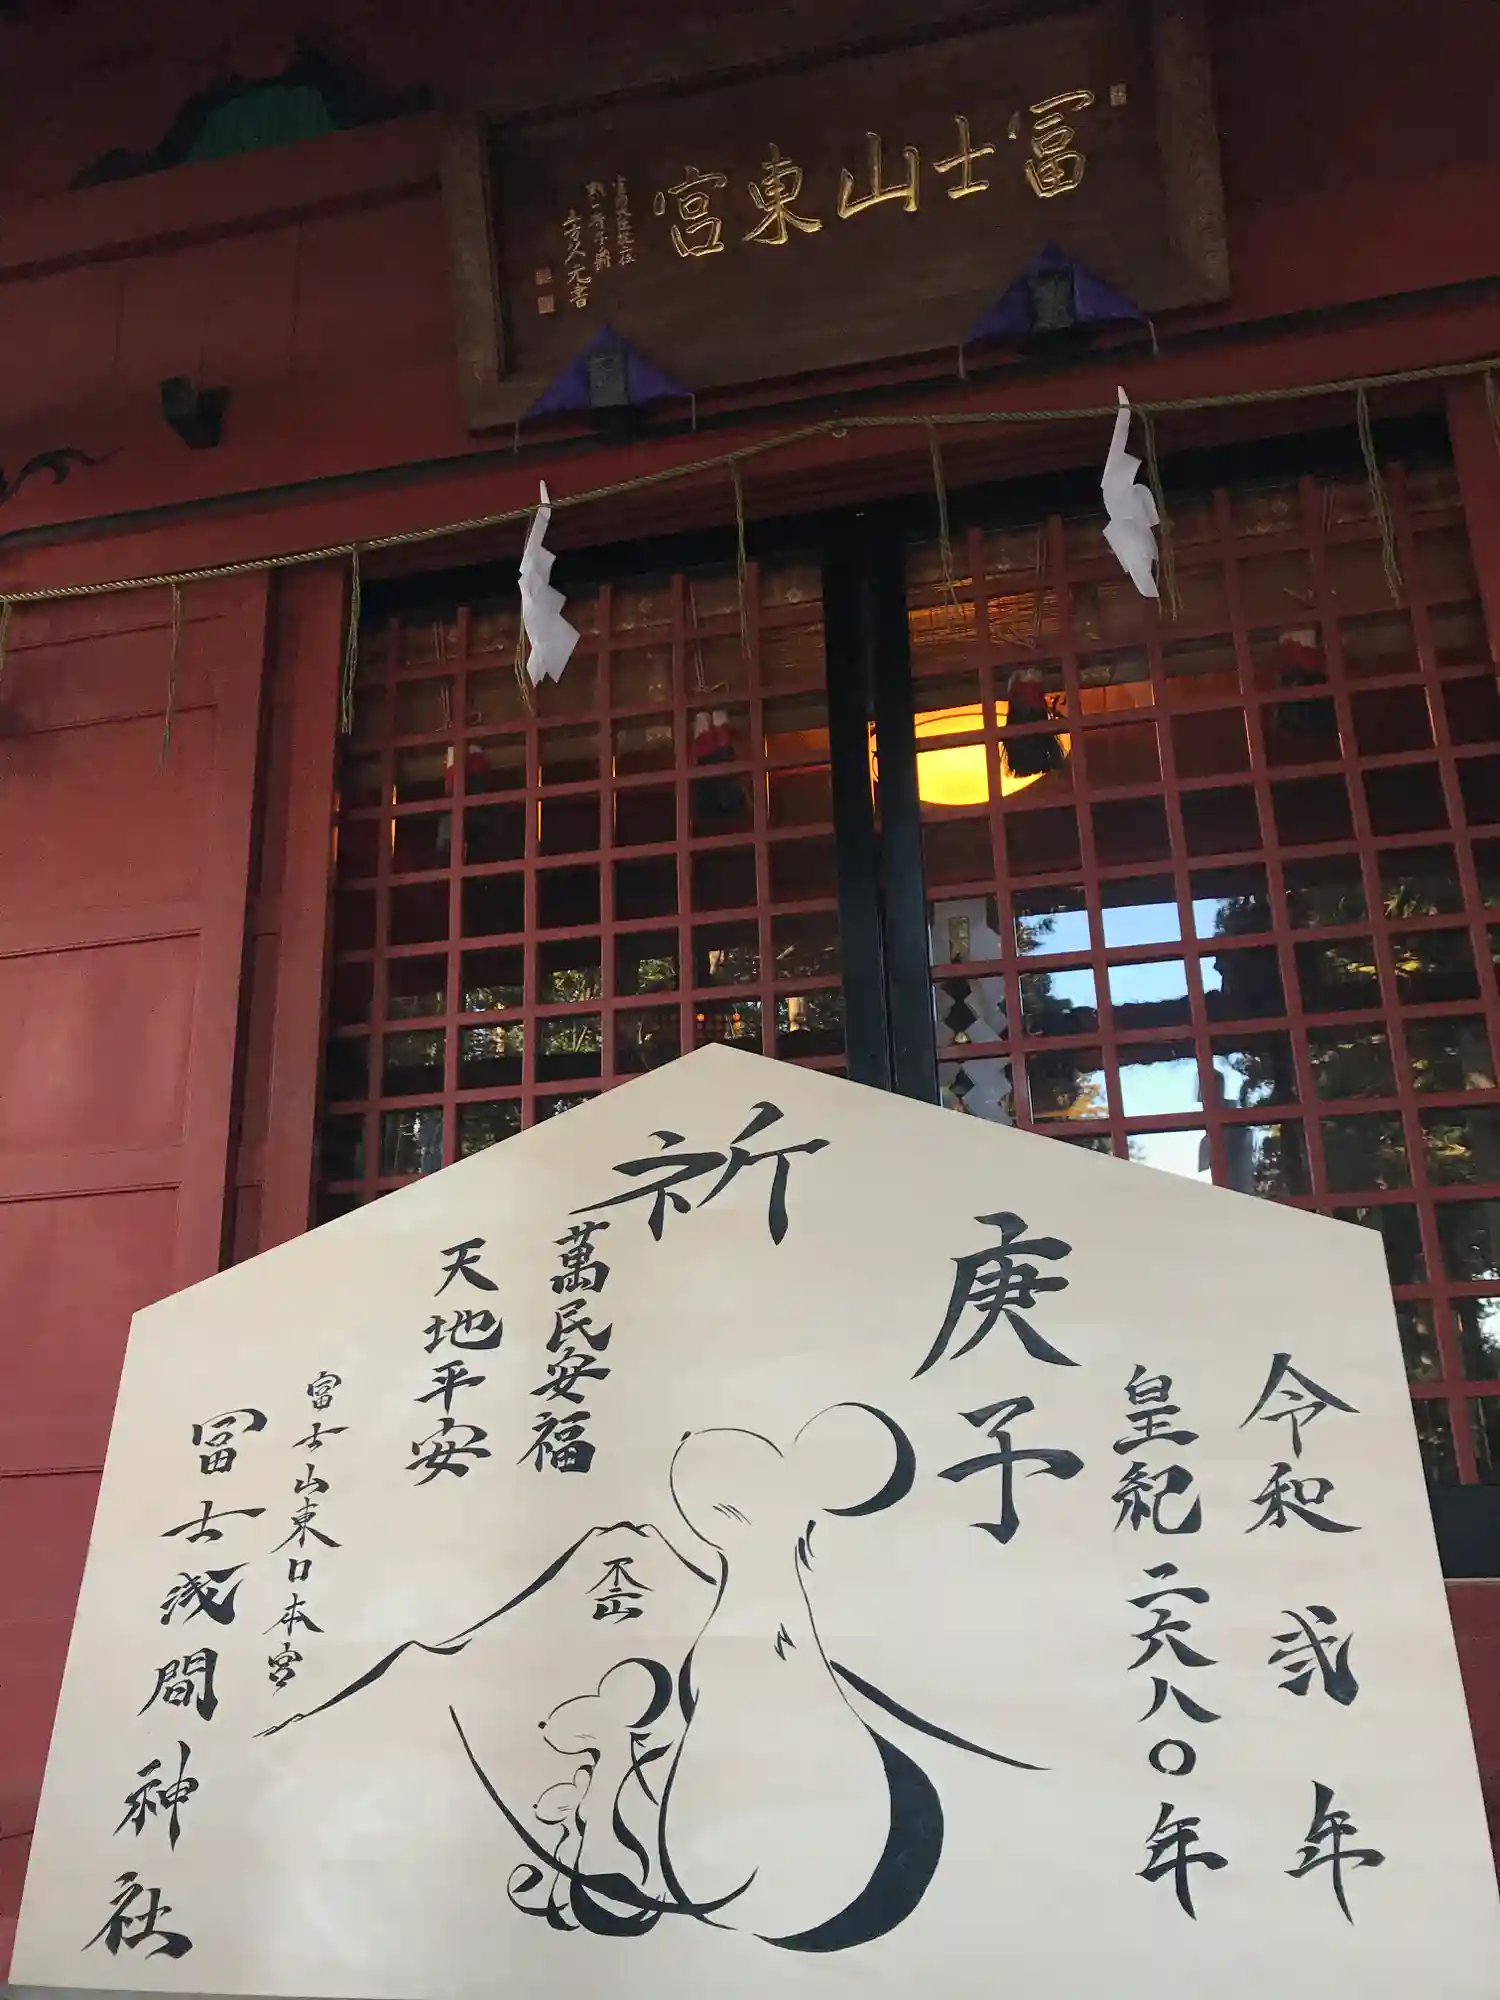 冨士山東宮
祈
庚子
令和弐年
皇紀二六八〇年
萬民安福
天地平安
不二山
富士山東日本宮
冨士浅間神社